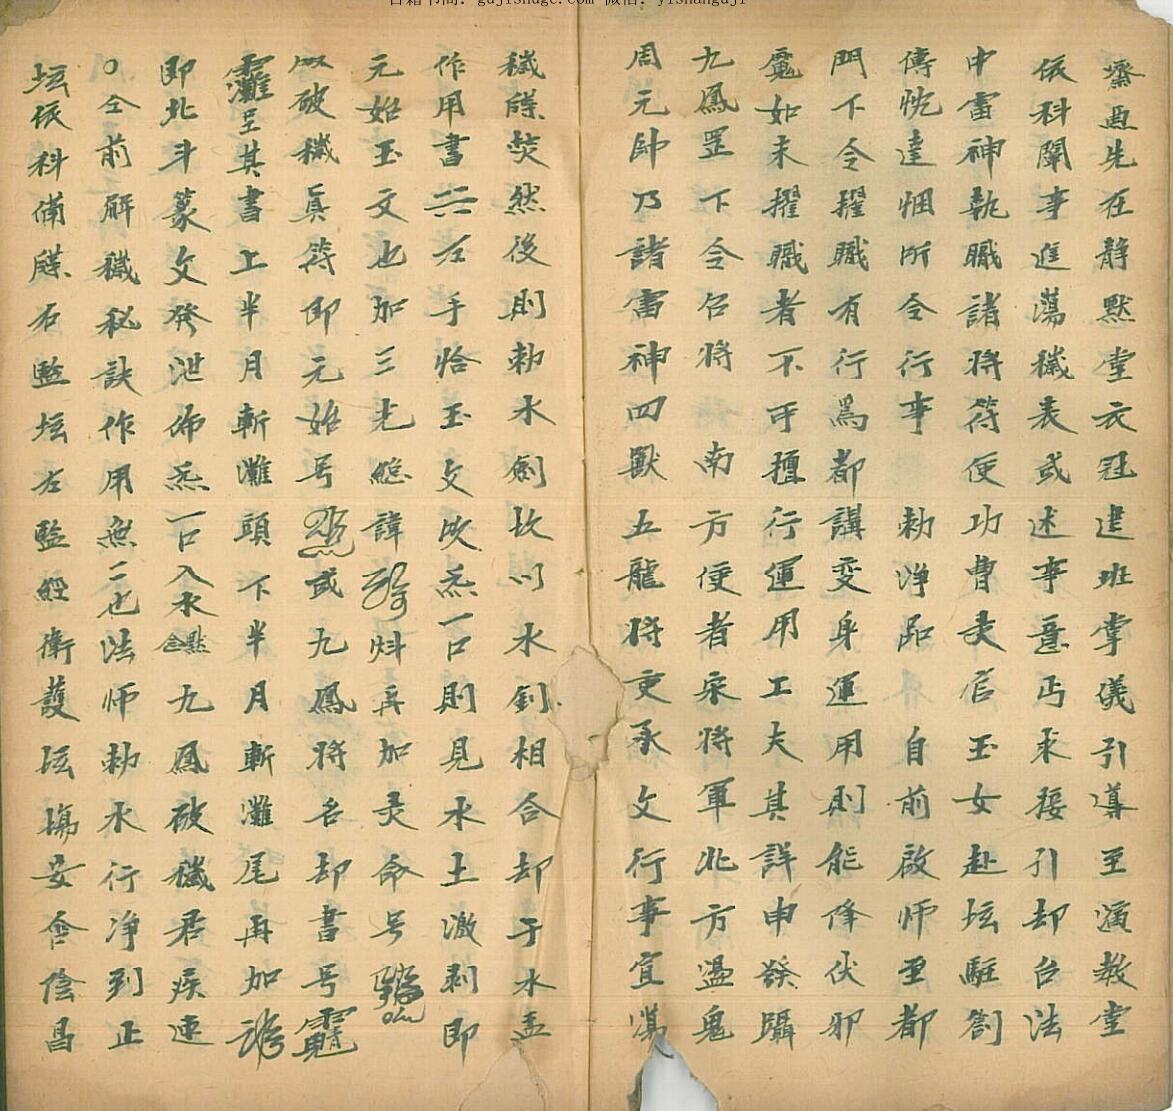 古籍书阁: gujishuge.com 微信: yishanguji
齋恵先在靜默堂衣冠建班掌儀引導至演教堂
依科闡事進蕩穢表或述事意丐求接引却台法
中雷神執職諸將符使功曹灵官玉女赴坛駐劄
傳忱達悃所令行事 勅淨品 自前啟师至都
門下令擢職有行爲都講变身運用則能降伏邪
魔如未擢職者不可擅行運用工夫其詳申發躡
九鳳罡下令召將 南方便者宋將軍北方温鬼
周元帥乃諸雷神四獸五龍將吏承文行事宜蕩
穢牒焚然後則勅水劍故以水釗相合却于水盂
作用書 右手恰玉文吹炁一口則見水土激剥即
元始玉文也加三光緫諱 再加灵命号
破穢真符即元始号 或九鳳將名却書号
呈其書上半月斬灘頭下半月斬灘尾再加
即北斗篆文發泄佈炁一口入水念點九鳳破穢君疾速
○仝前解穢秘訣作用無二也法师勅水行净到正
坛依科俻牒右監坛左監經衛護坛場安奮陰昌